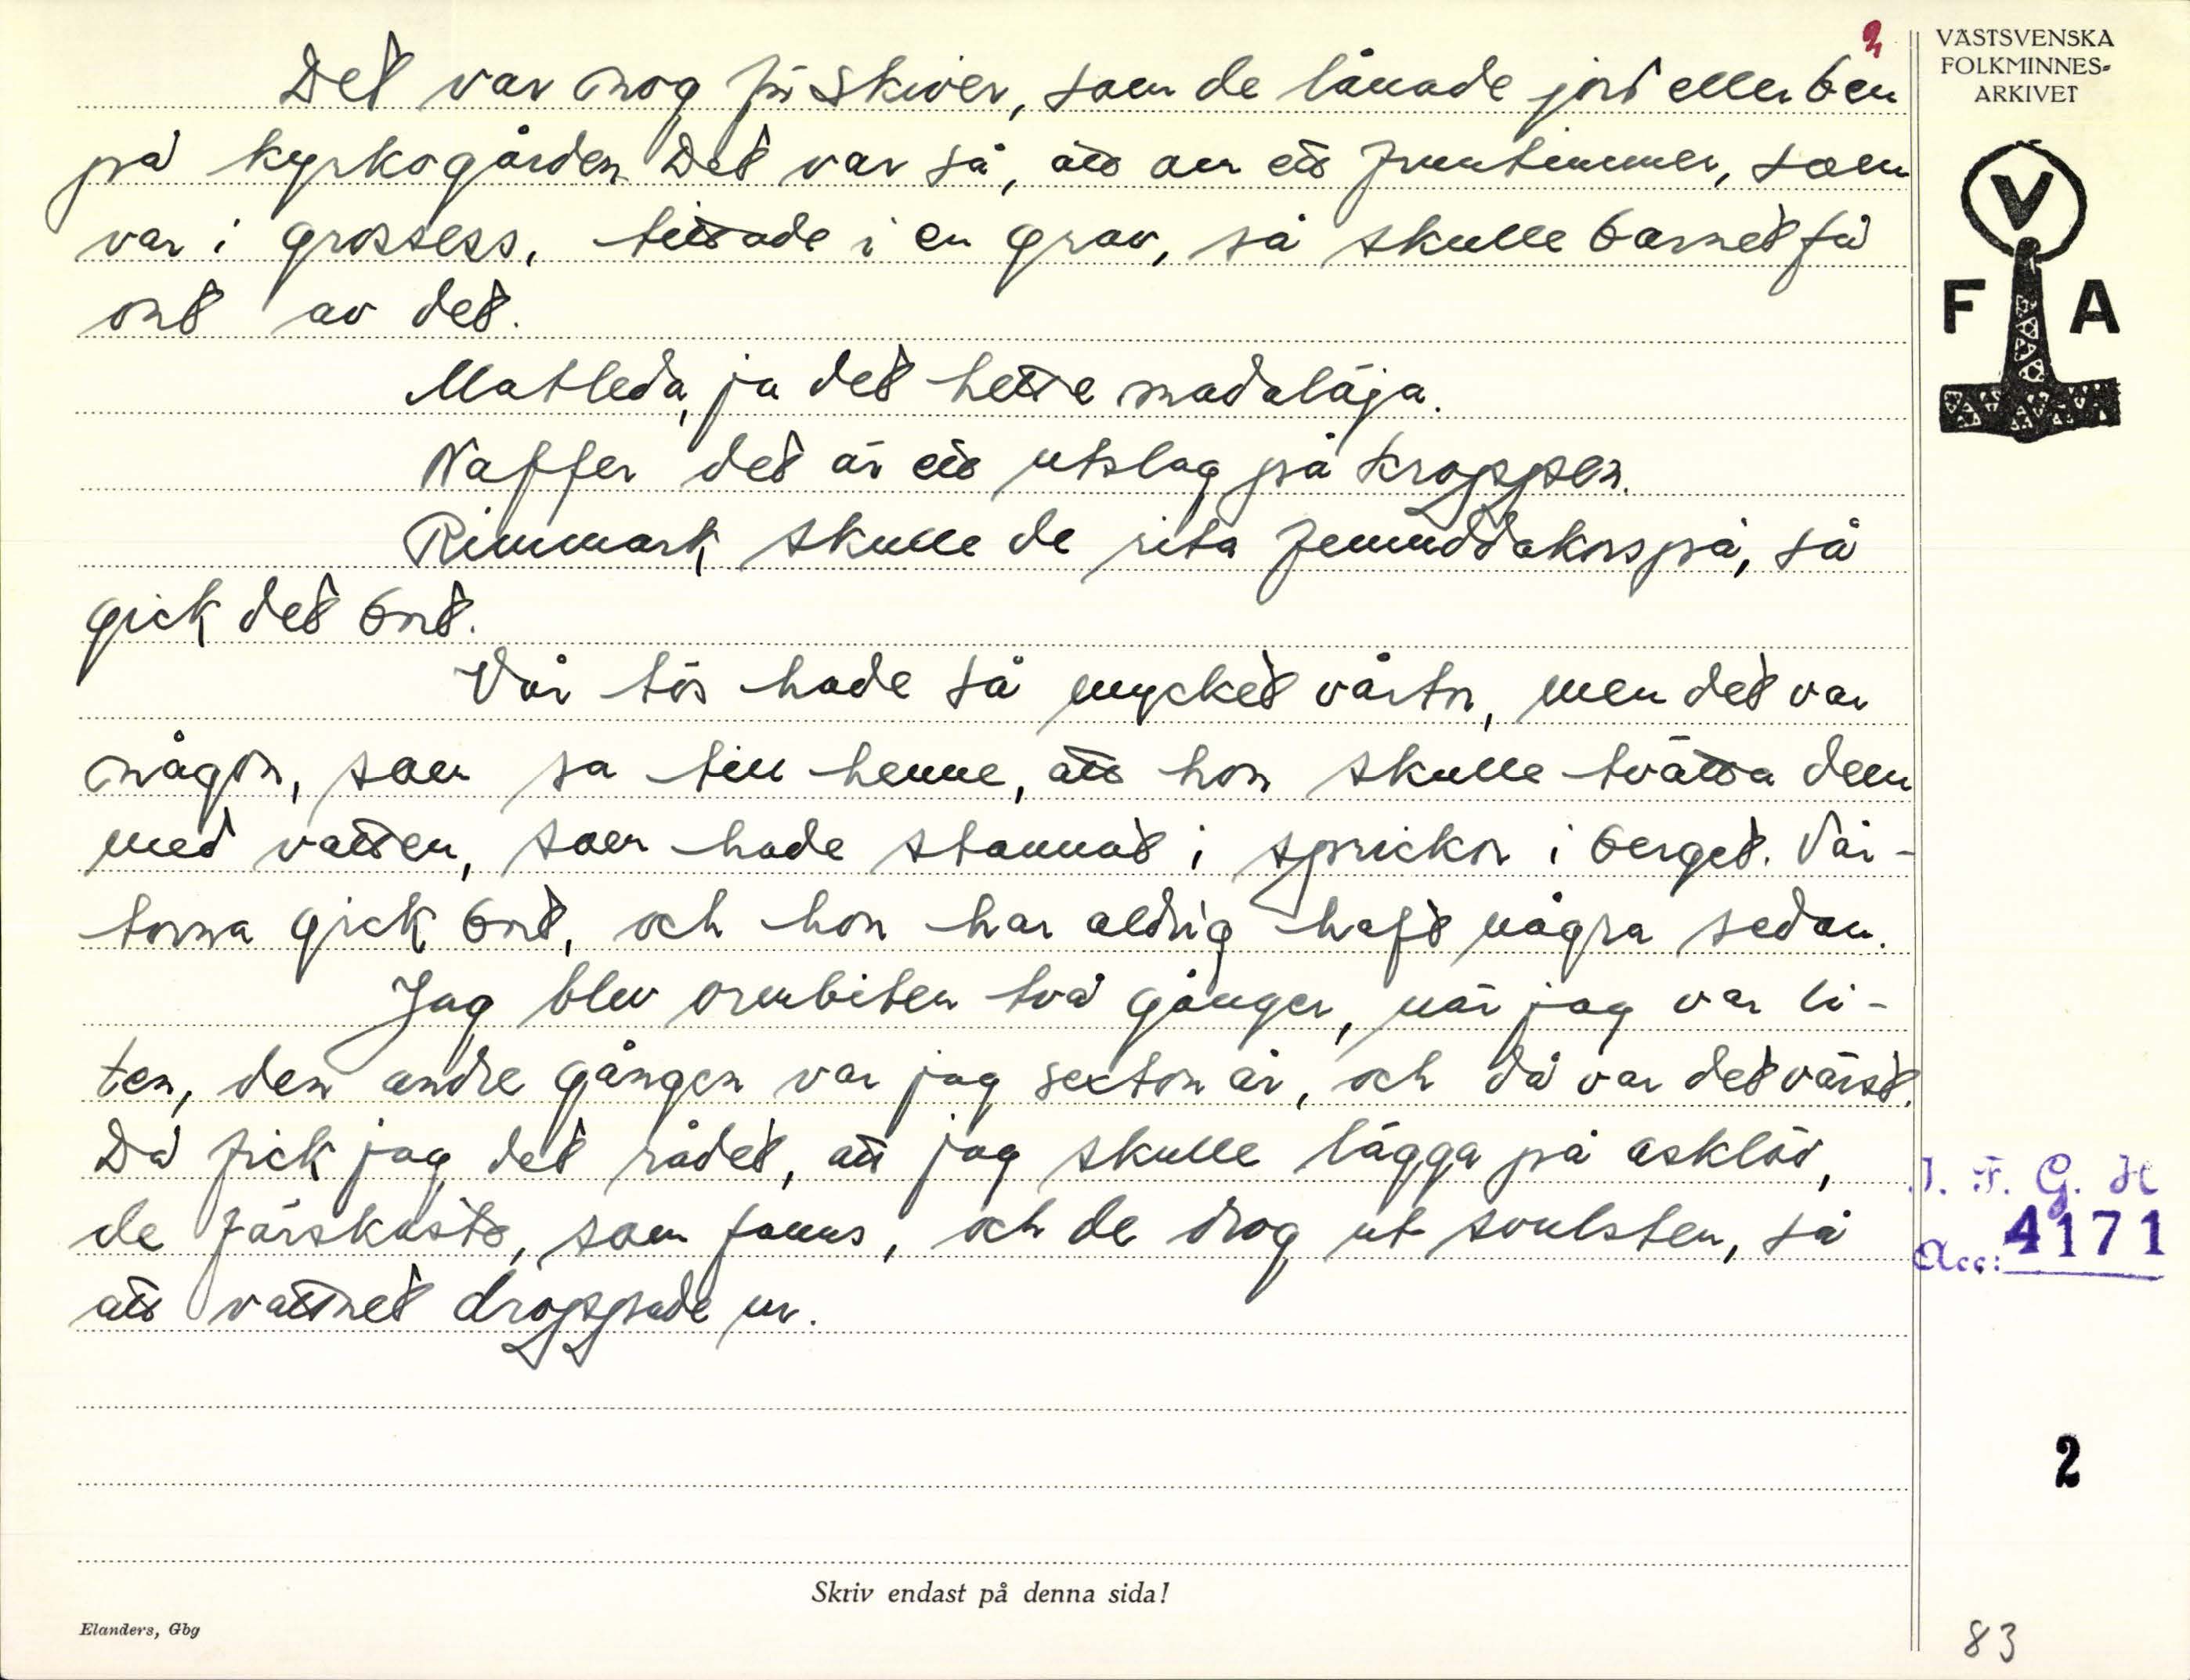 2
Det var nog för skiver, som de lånade jord eller ben
på kyrkogården. Det var så, att om ett fruntimmer, som
var i grossess, tittade i en grav, så skulle barnet få
ont av det.
Matleda, ja det hette madaläja.
Naffer det är ett utslag på kroppen.
Rimmark, skulle de rita femuddakors på, så
gick det bort.
Vår tös hade så mycket vårtor, men det var
någon, som sa till henne, att hon skulle tvätta dem
med vatten, som hade stannat i sprickor i berget. Vår-
torna gick bort, och hon har aldrig haft några sedan.
Jag blev ormbiten två gånger, när jag var li-
ten, den andre gången var jag sexton år, och då var det värst.
Då fick jag det rådet, att jag skulle lägga på asklöv,
de färskaste, som fanns, och de drog ut svulsten, så
att vattnet droppade ur.
Skriv endast på denna sida!
Elanders, Gbg
VÄSTSVENSKA
FOLKMINNES-
ARKIVET
V
F A
I. F. G. H
Acc: 4171
2
83